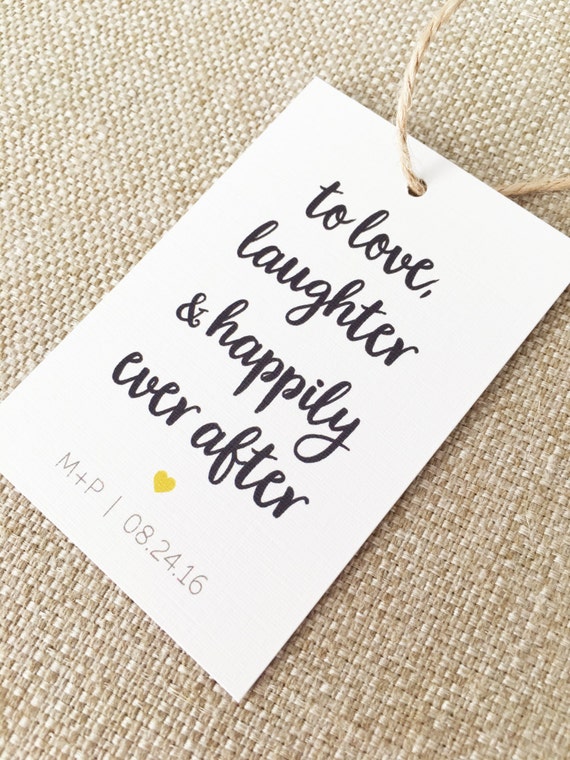 to love,
laughter
& happily
ever after
M+P | 08.24.16